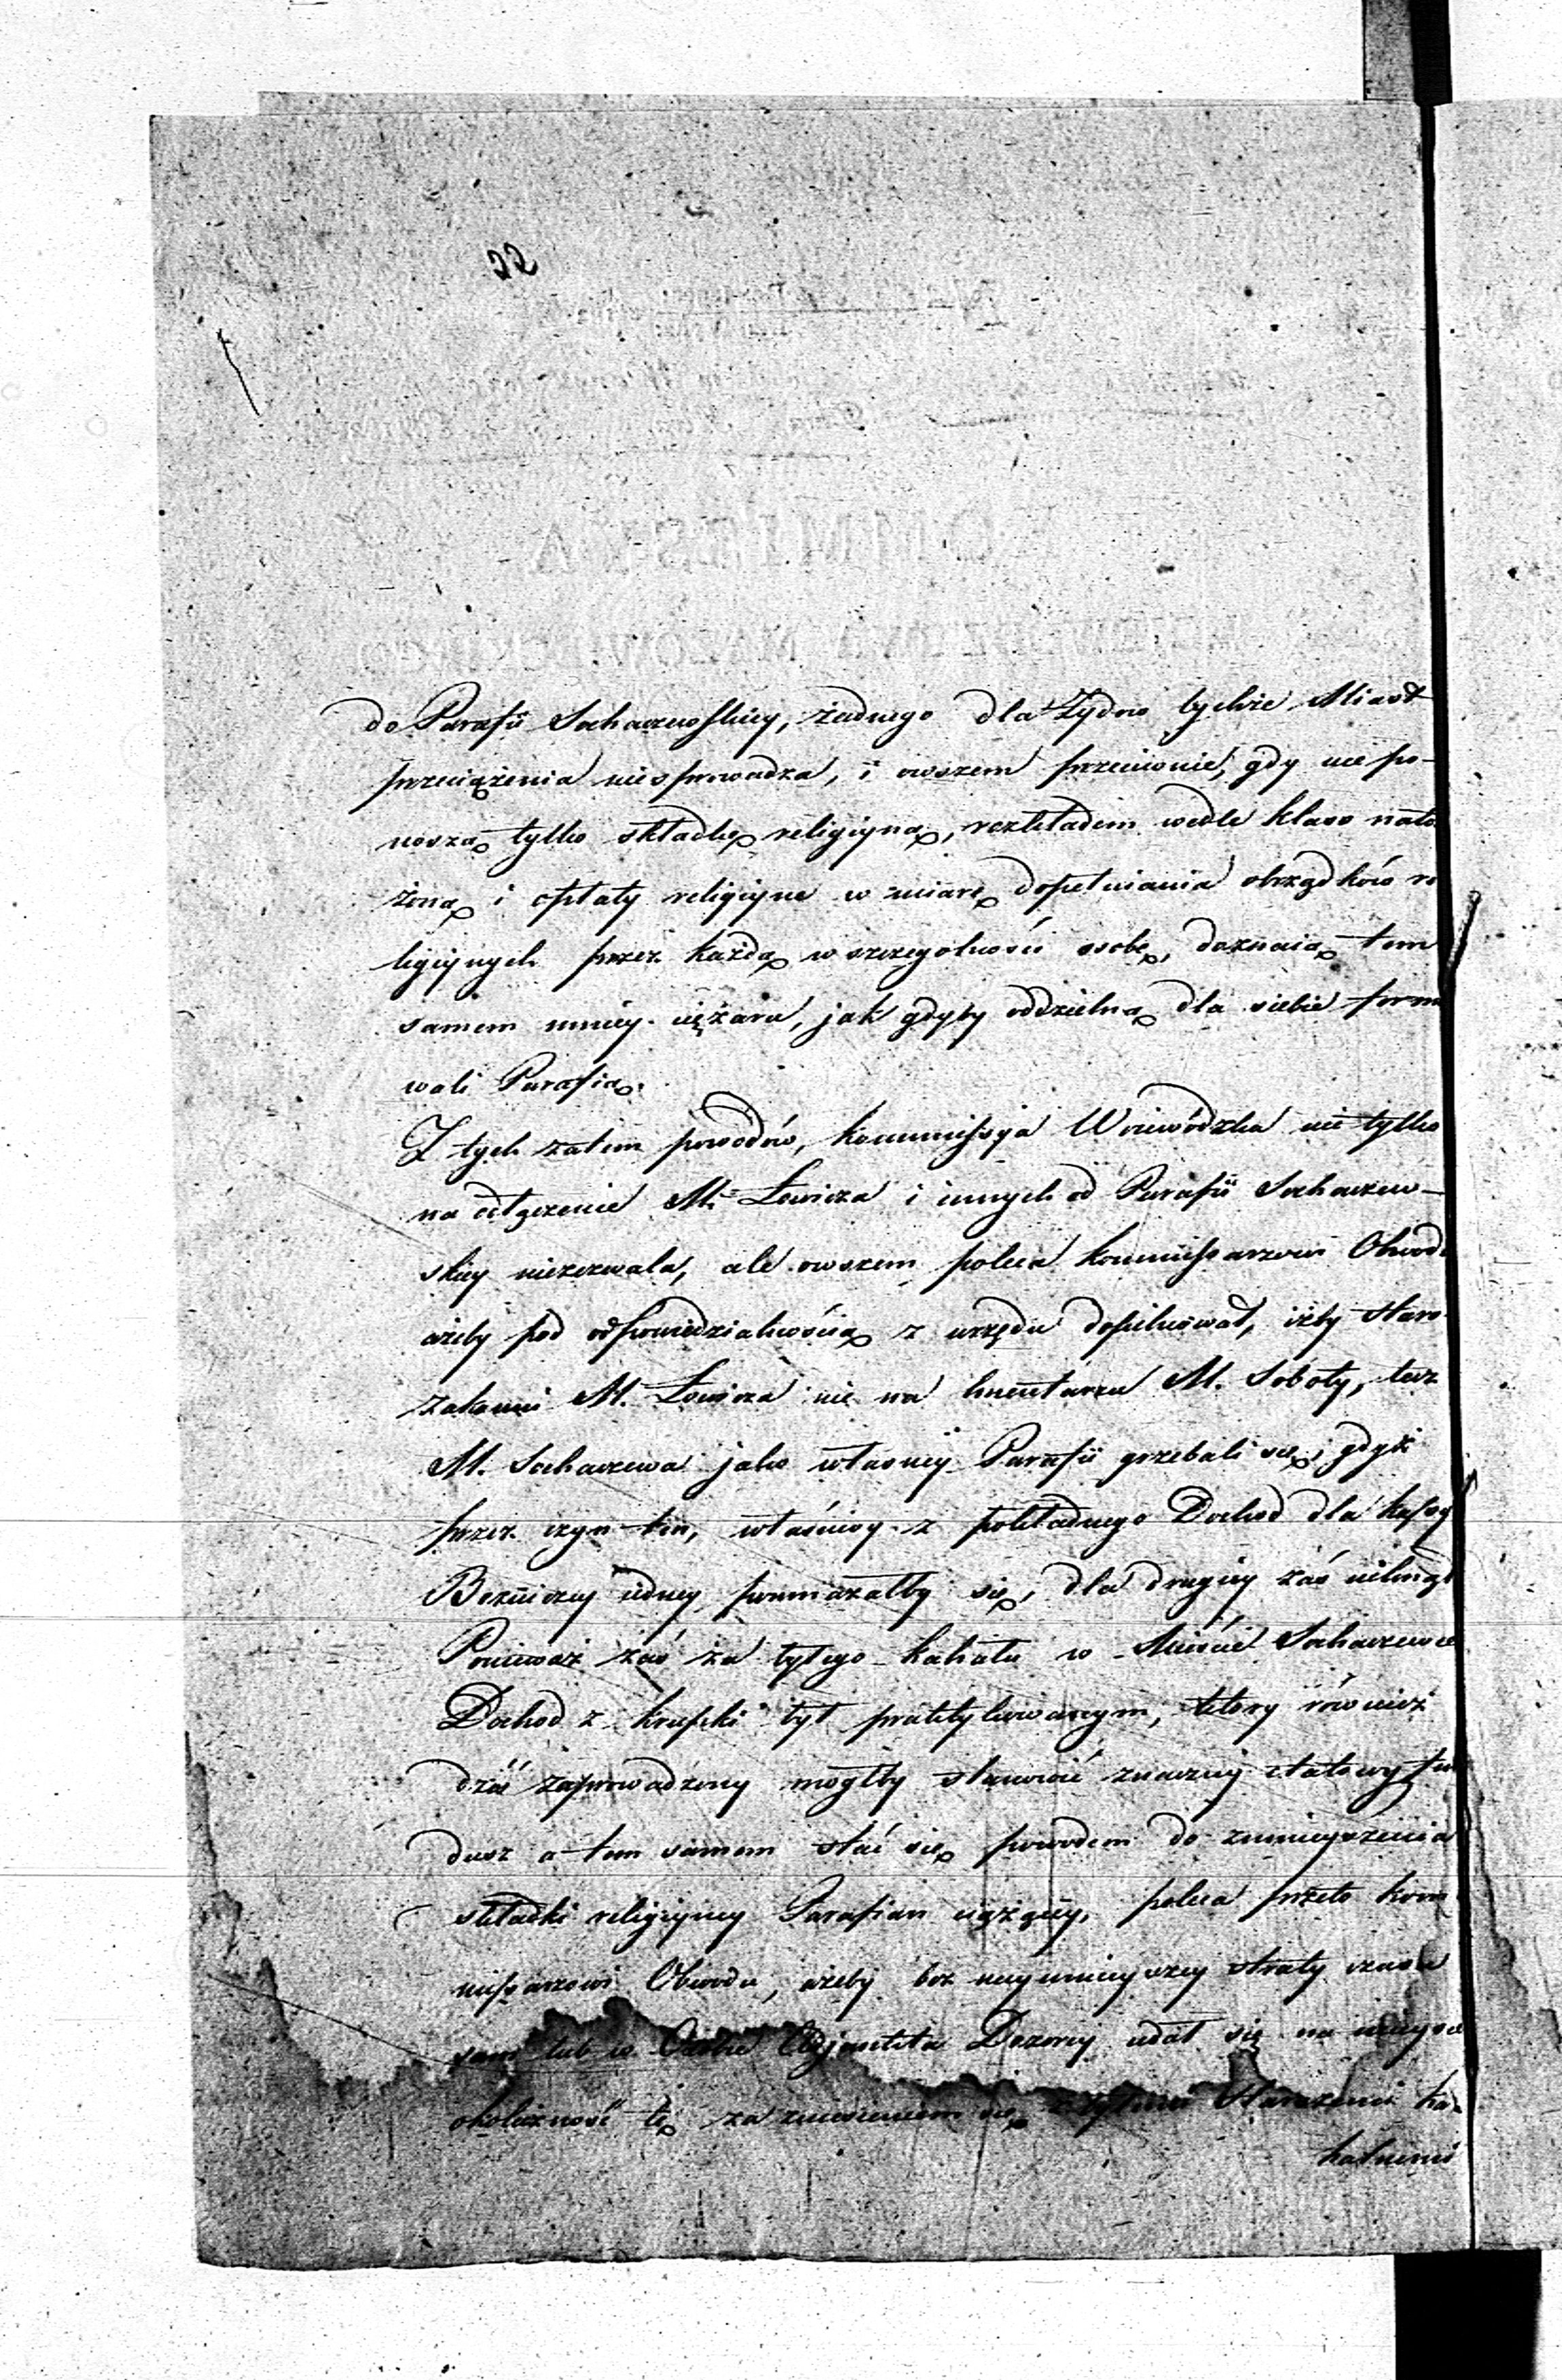 22
do Parafii Sochaczewskiey, żadnego dla Żydów tychże Miast
przeciążenia niesprowadza, i owszem przeciwnie, gdy nie po-
noszą tylko składkę religiyną, rozkładem wedle klass nało
żoną i opłaty religiyne w miarę dopełniania obrządków re
ligiynych przez każdą w szczegolności osobę, doznaią tem
samem mniey ciężaru, jak gdyby oddzielną dla siebie formo
wali Parafią.
Z tych zatem powodów, Kommissya Woiewódzka nie tylko
na odłączenie M. Łowicza i innych od Parafii Sochaczew-
skiey niezezwala, ale owszem poleca Kommissarzowi Obwodu
ażeby pod odpowiedzialnością z urzędu dopilnował, iżby Staro-
zakonni M. Łowicza nie na Smentarzu M. Soboty, lecz
M. Sochaczewa jako własney Parafii grzebali się, gdyż
przez czyn ten, właściwy z pokładnego Dochod dla kassy
Bożniczey iedney pomnażałby się, dla drugiey zaś niknął
Ponieważ zaś za byłego Kahału w Mieście Sochaczewie
Dochod z Krupki był praktykowanym, ktory również
dziś zaprowadzony mogłby stanowić znaczny etatowy fun
dusz a tem samem stać się powodem do zmnieyszenia
składki religiyney Parafian ciążącey, poleca przeto Kom
missarzowi Obwodu, ażeby bez naymnieyszey straty czasu
sam lub w Osobie Adjunkta Dozorcy udał się na mieysce
okoliczność tę za zniesieniem się z byłemi Starszemi ka-
halnemi